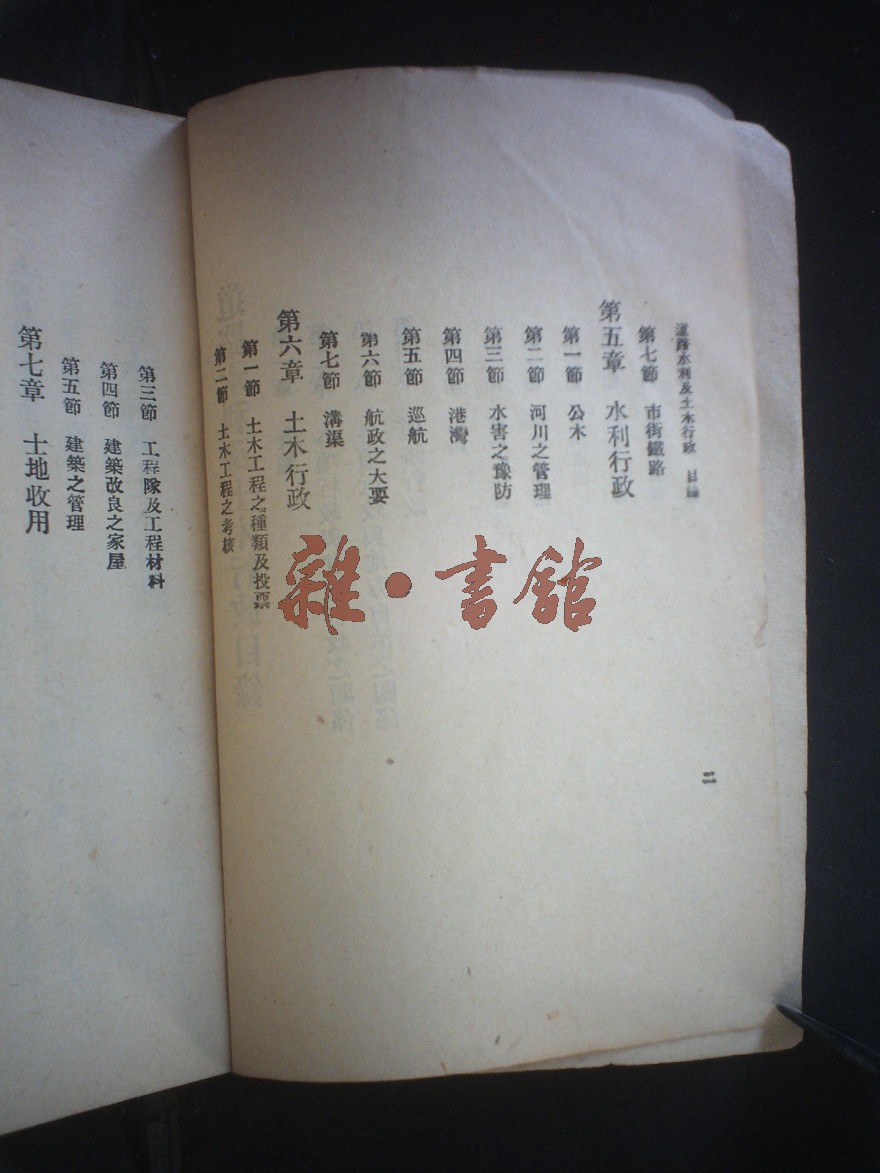 道路水利及土木行政 目錄
第七節 市街鐵路
第五章 水利行政
第一節 公木
第二節 河川之管理
第三節 水害之豫防
第四節 港灣
第五節 巡航
第六節 航政之大要
第七節 溝渠
第六章 土木行政
第一節 土木工程之種類及投票
第二節 土木工程之考核
二
第三節 工程隊及工程材料
第四節 建築改良之家屋
第五節 建築之管理
第七章 土地收用
雜·書館